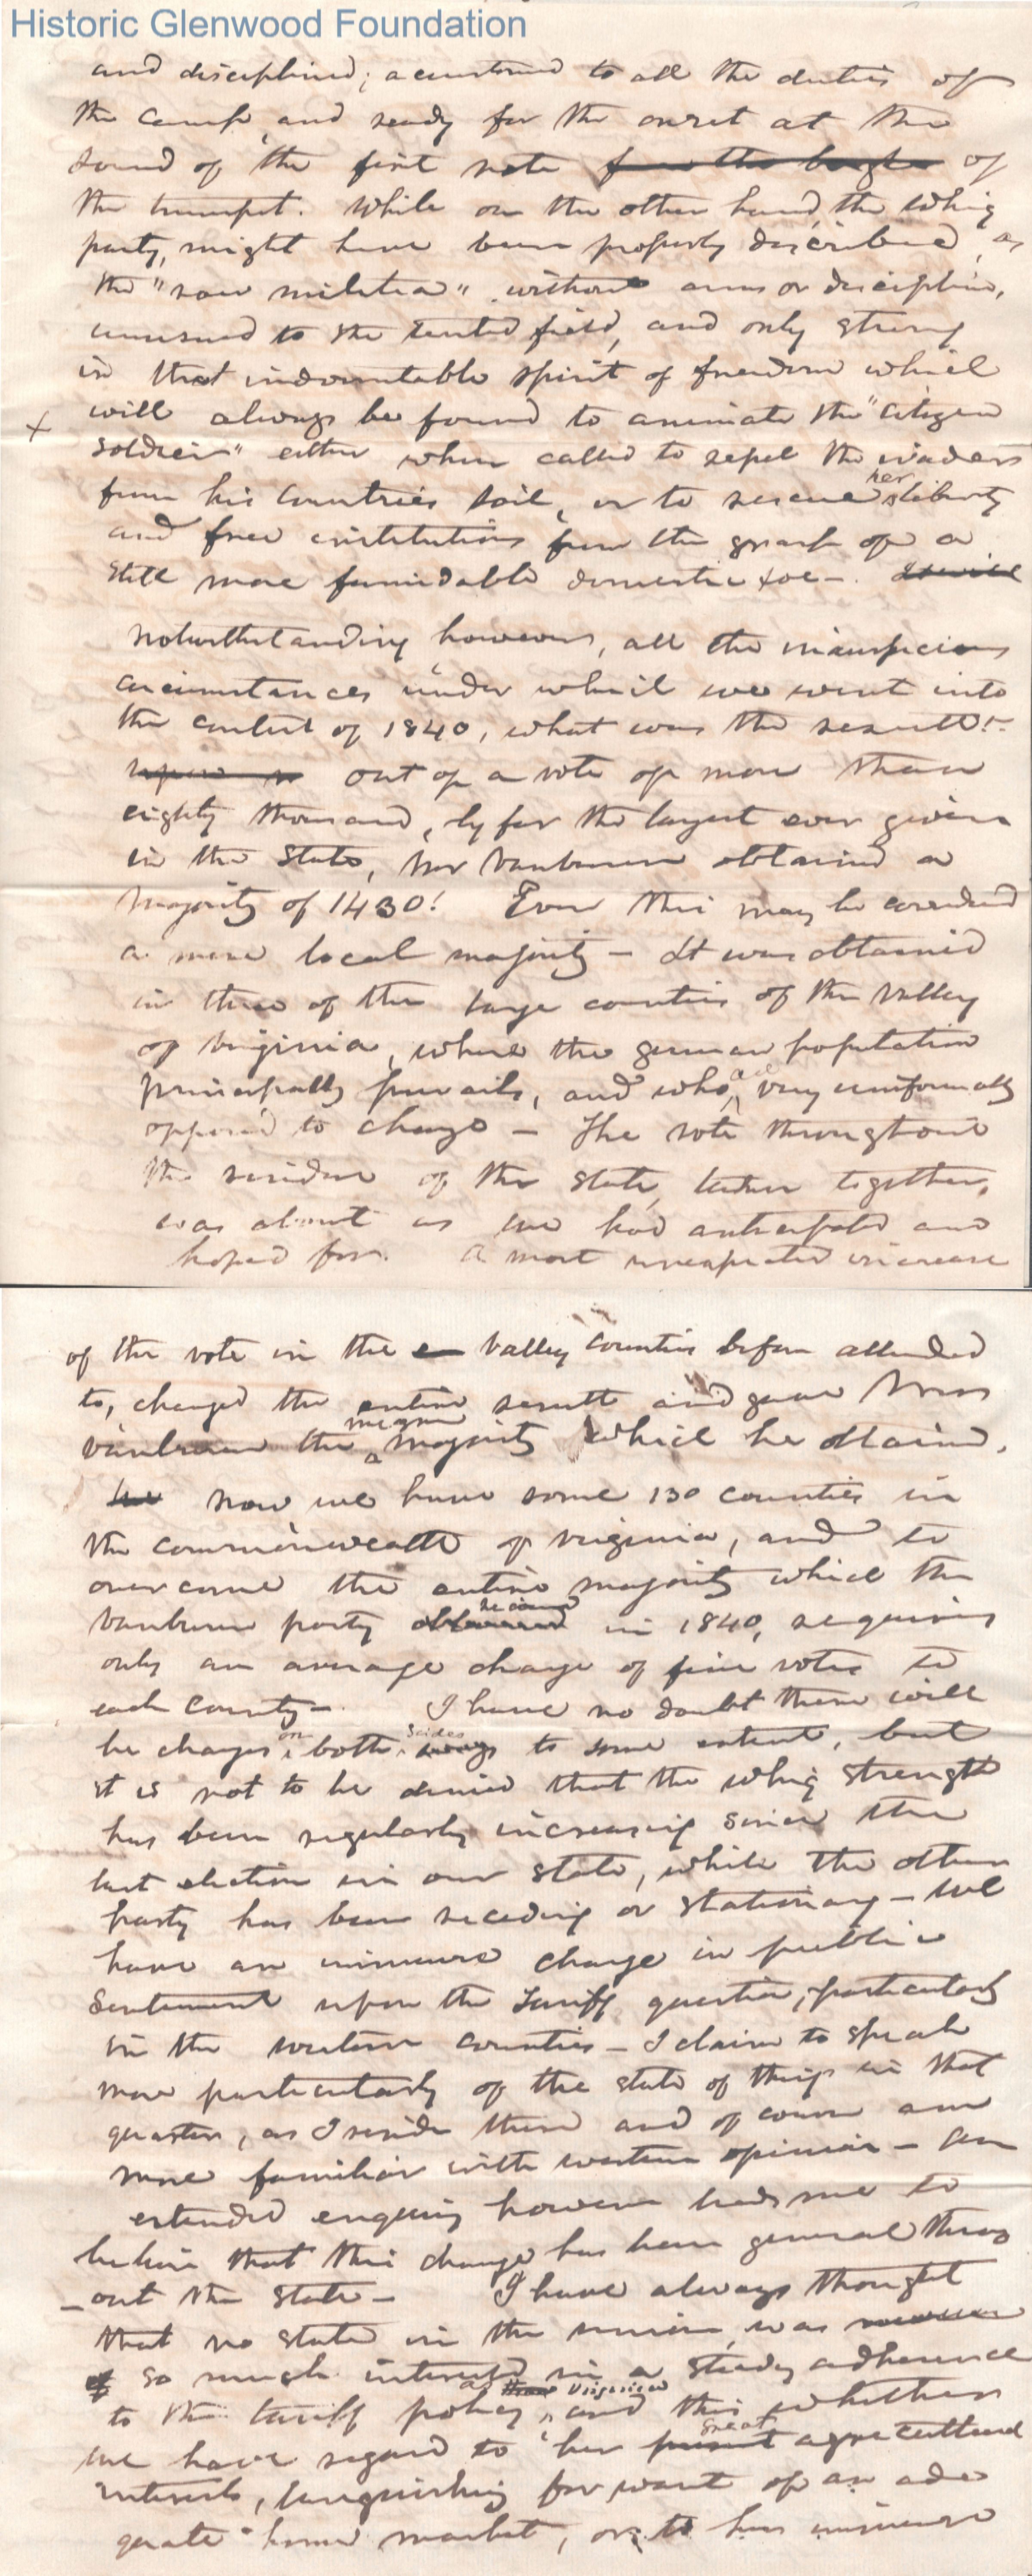 Historic Glenwood Foundation
and disciplined; acustomed to all the duties of
the camp, and ready for the onset at the
sound of the first note from the bugle of
the trumpet. While on the other hand, the whig
party, might have been properly described, as
the "raw militia" without arms or discipline,
unused to the tented field, and only strong
in that indomitable spirit of freedom which
+ will always be found to animate the "citizen
soldier" either when called to repel the invaders
from his countries soil, or to rescue her liberty
and free institutions from the grasp of a
still more formidable domestic foe—.
Notwithstanding however, all the inauspicious
circumstances under which we went into
the contest of 1840, what was the result?—
out of a vote of more than
eighty thousand, by far the largest ever given
in the State, Mr Vanburen obtained a
majority of 1430! Even this may be considered
a mere local majority — It was obtained
in three of the large counties of the Valley
of Virginia, where the german population
principally prevails, and who are very uniformally
opposed to change — The vote throughout
the residue of the state, taken together,
was about as we had anticipated and
hoped for. A most unexpected increase
of the vote in the valley counties before alluded
to, changed the entire result and gave Mr
Vanburen the meagre majority which he obtained.
Now we have some 130 counties in
the commonwealth of Virginia, and to
overcome the entire majority which the
Vanburen party obtained in 1840, requires
only an average change of five votes to
each county—. I have no doubt there will
be changes on both sides ways to some extent, but
it is not to be denied that the whig strength
has been regularly increasing since the
last election in our state, while the other
party has been receding or stationary — We
have an immense change in public
sentiment upon the Tariff question, particularly
in the western counties — I claim to speak
more particularly of the state of things in that
quarter, as I reside there and of course am
more familiar with western opinion — An
extended enquiry however leads me to
believe that this change has been general throu
—out the State — I have always thought
that no state in the union, was
so much interested in a steady adherence
to the tariff policy, as Virginia and this whether
we have regard to her great present agricultural
interests, languishing for want of an ade
quate home market, or to her immense